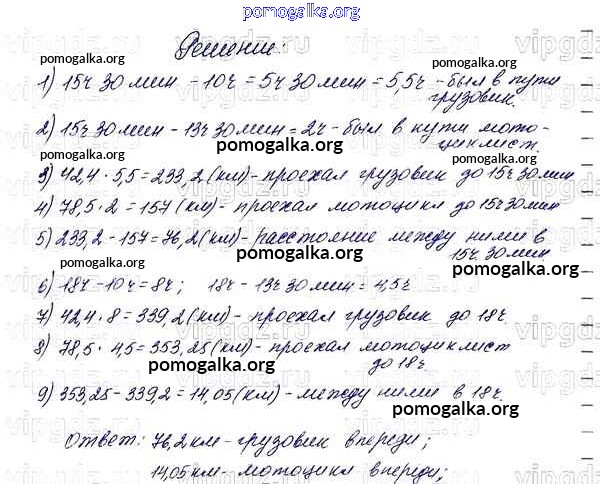 pomogalka.org
Решение:
pomogalka.org
pomogalka.org
1) 15ч 30 мин - 10ч = 5ч 30 мин = 5,5ч - был в пути
грузовик.
pomogalka.org
2) 15ч 30 мин - 13ч 30 мин = 2ч - был в пути мото-
циклист.
pomogalka.org
pomogalka.org
3) 42,4 · 5,5 = 233,2 (км) - проехал грузовик до 15ч 30 мин
4) 78,5 · 2 = 157 (км) - проехал мотоцикл до 15ч 30 мин
pomogalka.org
5) 233,2 - 157 = 76,2 (км) - расстояние между ними в
15ч 30 мин
pomogalka.org
pomogalka.org
pomogalka.org
6) 18ч - 10ч = 8ч; 18ч - 13ч 30 мин = 4,5ч
7) 42,4 · 8 = 339,2 (км) - проехал грузовик до 18ч.
pomogalka.org
8) 78,5 · 4,5 = 353,25 (км) - проехал мотоциклист
до 18ч.
pomogalka.org
9) 353,25 - 339,2 = 14,05 (км) - между ними в 18ч.
pomogalka.org
Ответ: 76,2 км - грузовик впереди;
pomogalka.org
14,05 км - мотоцикл впереди;